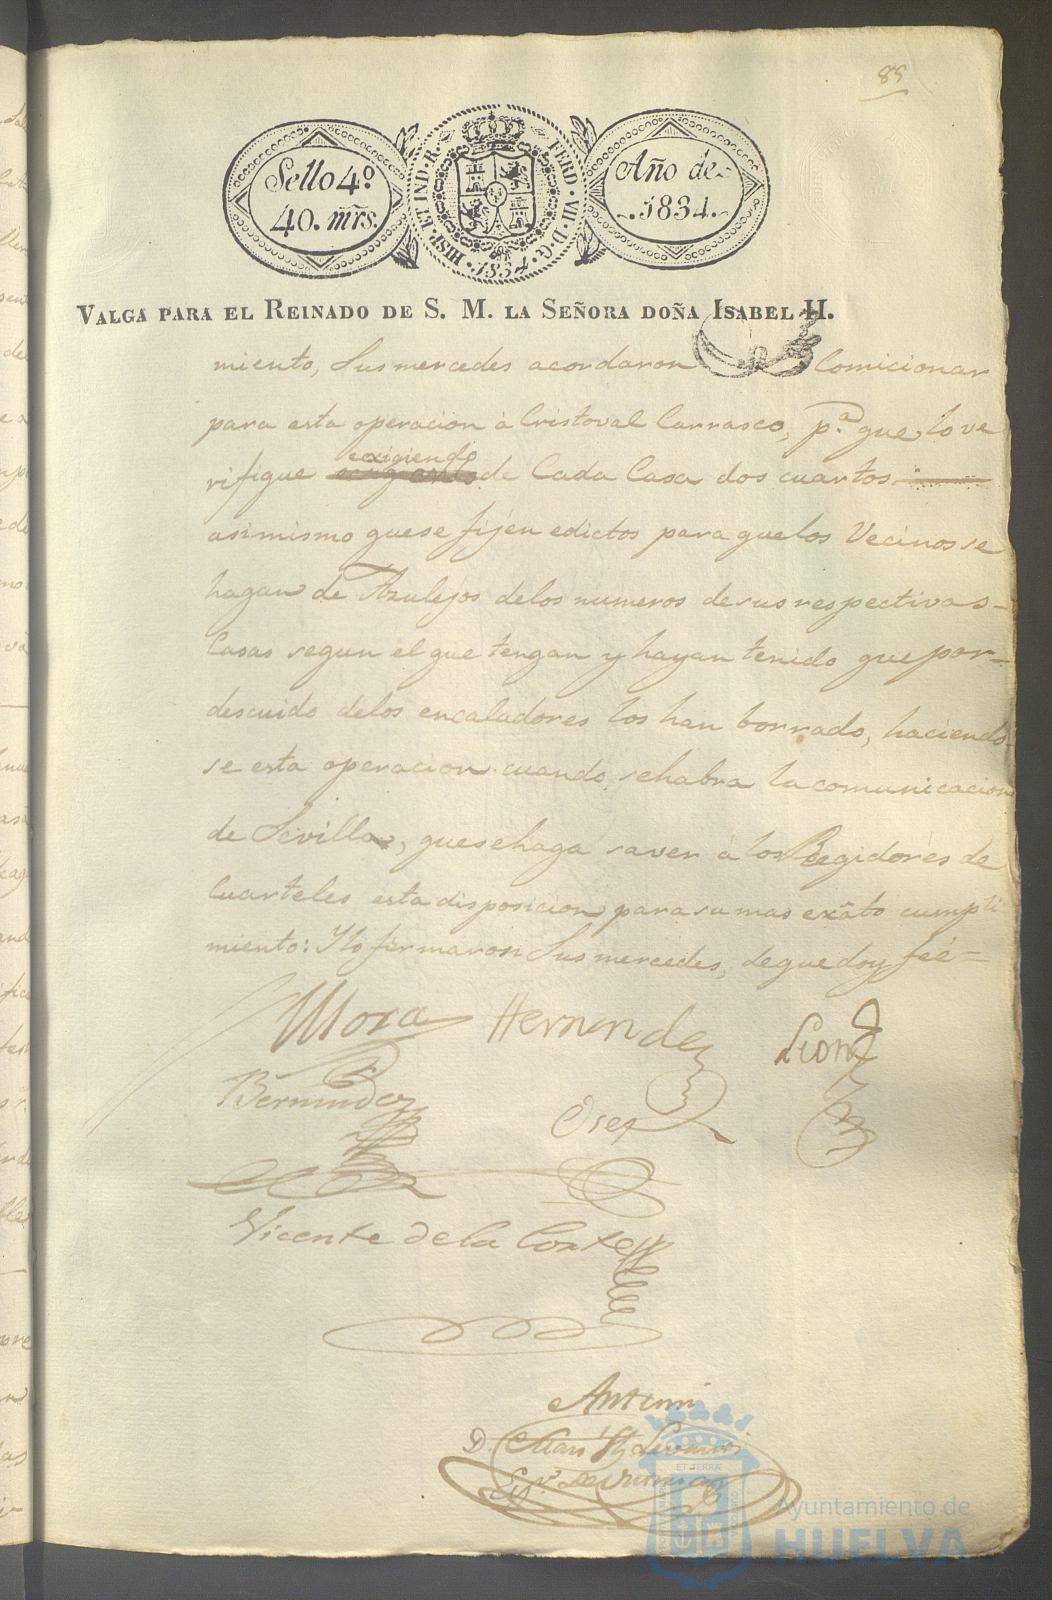 85
Sello 4º
40. mrs.
HISP. ET IND. R. FERD. VII. D. G. 1834.
Año de
1834.
VALGA PARA EL REINADO DE S. M. LA SEÑORA DOÑA ISABEL II.
miento, Sus mercedes acordaron Comicionar
para esta operacion à Cristoval Carrasco, p.ª que lo ve
exigiendo
rifique de Cada Casa dos cuartos
asimismo que se fijen edictos para que los Vecinos se
hagan de Azulejos de los numeros de sus respectivas
Casas segun el que tengan y hayan tenido que por
descuido delos encaladores los han borrado, haciendo
se esta operacion cuando se habra la comunicacion
de Sevilla, que se haga saver à los Regidores de
Cuarteles esta disposicion para su mas exàto cumpli
miento: Y lo firmaron Sus mercedes, de que doy feé =
Mora Hernandez Leon
Bermudez
Vicente de la Corte
Ante mi
D.
Ayuntamiento de
HUELVA